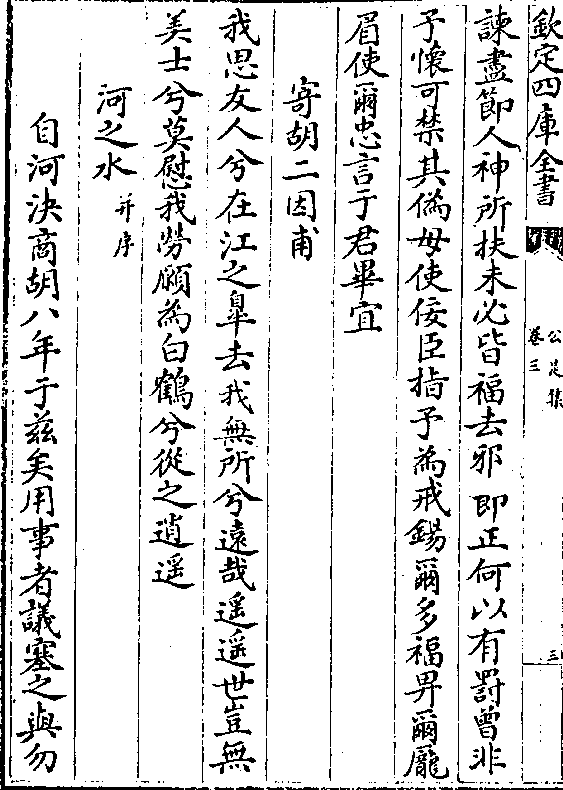 欽定四庫全書
公是集
卷三
三
諫盡節人神所扶未必皆福去邪即正何以有罰曾非
予懷可禁其偽毋使佞臣指予為戒錫爾多福畀爾龎
眉使爾忠言于君畢宜
寄胡二因甫
我思友人兮在江之臯去我無所兮遠哉遥遥世豈無
美士兮莫慰我勞願為白鶴兮從之逍遥
河之水并序
自河決商胡八年于兹矣用事者議塞之與勿